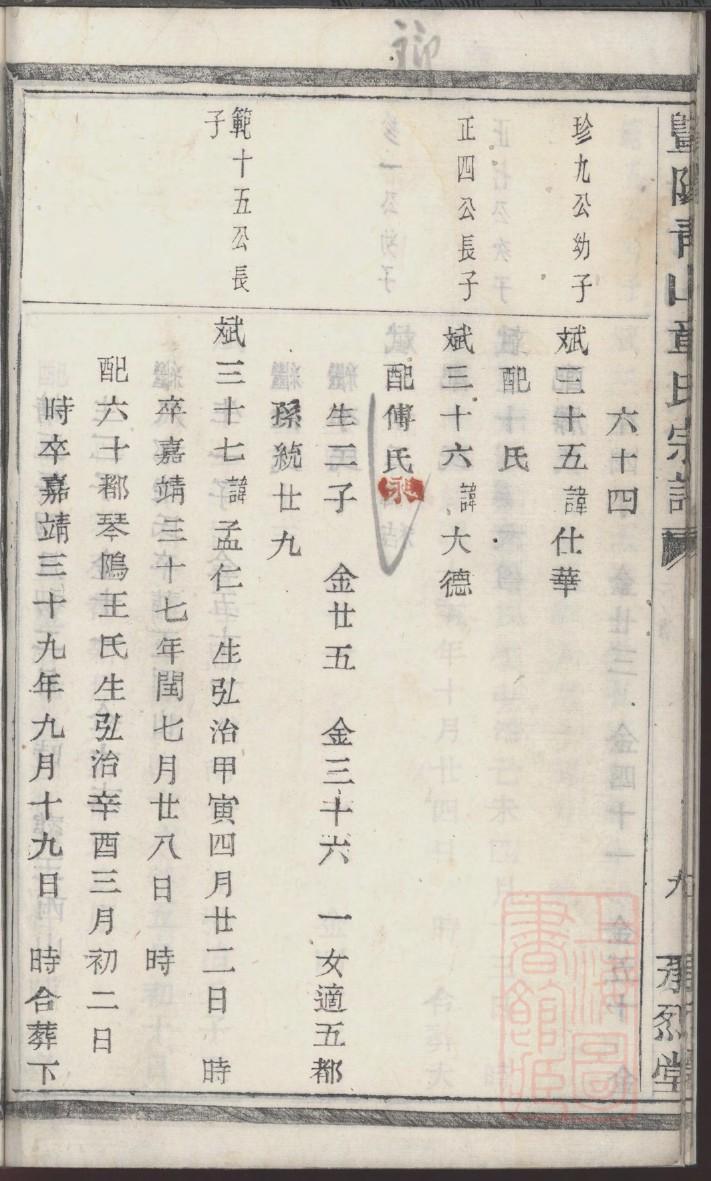 暨陽青山章氏宗譜
九
承烈堂
六十四
珍九公幼子
斌三十五諱仕華
配 氏
正四公長子
斌三十六諱大德
配傅氏
生二子 金廿五 金三十六 一女適五都
孫統廿九
範十五公長
子
斌三十七諱孟仁 生弘治甲寅四月廿二日 時
卒嘉靖三十七年閏七月廿八日 時
配六十都琴隖王氏生弘治辛酉三月初二日
時卒嘉靖三十九年九月十九日 時合葬下
上海圖書館藏